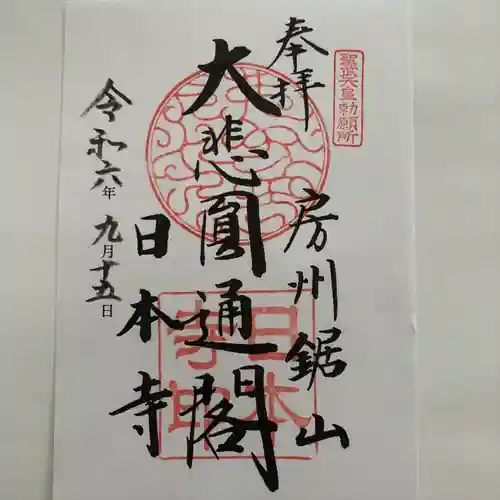 奉拝
聖武天皇勅願所
房州鋸山
大悲圓通閣
日本寺
令和六年九月十五日